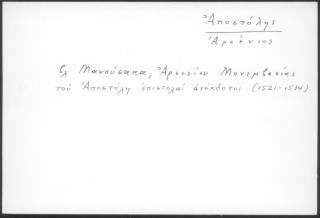 Ἀποστόλης
Ἀρσένιος
βλ. Μανούσακα, Ἀρσενίου Μονεμβασίας
τοῦ Ἀποστόλη ἐπιστολαί ἀνέκδοτοι (1521-1534)